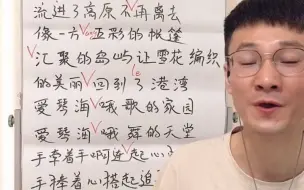 流进了高原不再离去
像一方五彩的帐篷
汇聚的岛屿让雪花编织
的美丽回到了港湾
爱琴海哦歌的家园
爱琴海哦舞的天堂
手牵着手啊连起心
手捧着心搭起